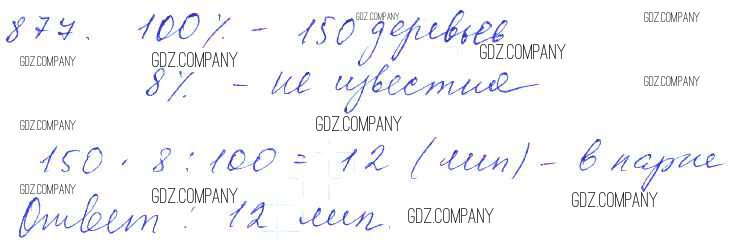 877. 100% - 150 деревьев
8% - не известно
150 · 8 : 100 = 12 (лип) - в парке
Ответ: 12 лип.
GDZ.COMPANY
GDZ.COMPANY
GDZ.COMPANY
GDZ.COMPANY
GDZ.COMPANY
GDZ.COMPANY
GDZ.COMPANY
GDZ.COMPANY
GDZ.COMPANY
GDZ.COMPANY
GDZ.COMPANY
GDZ.COMPANY
GDZ.COMPANY